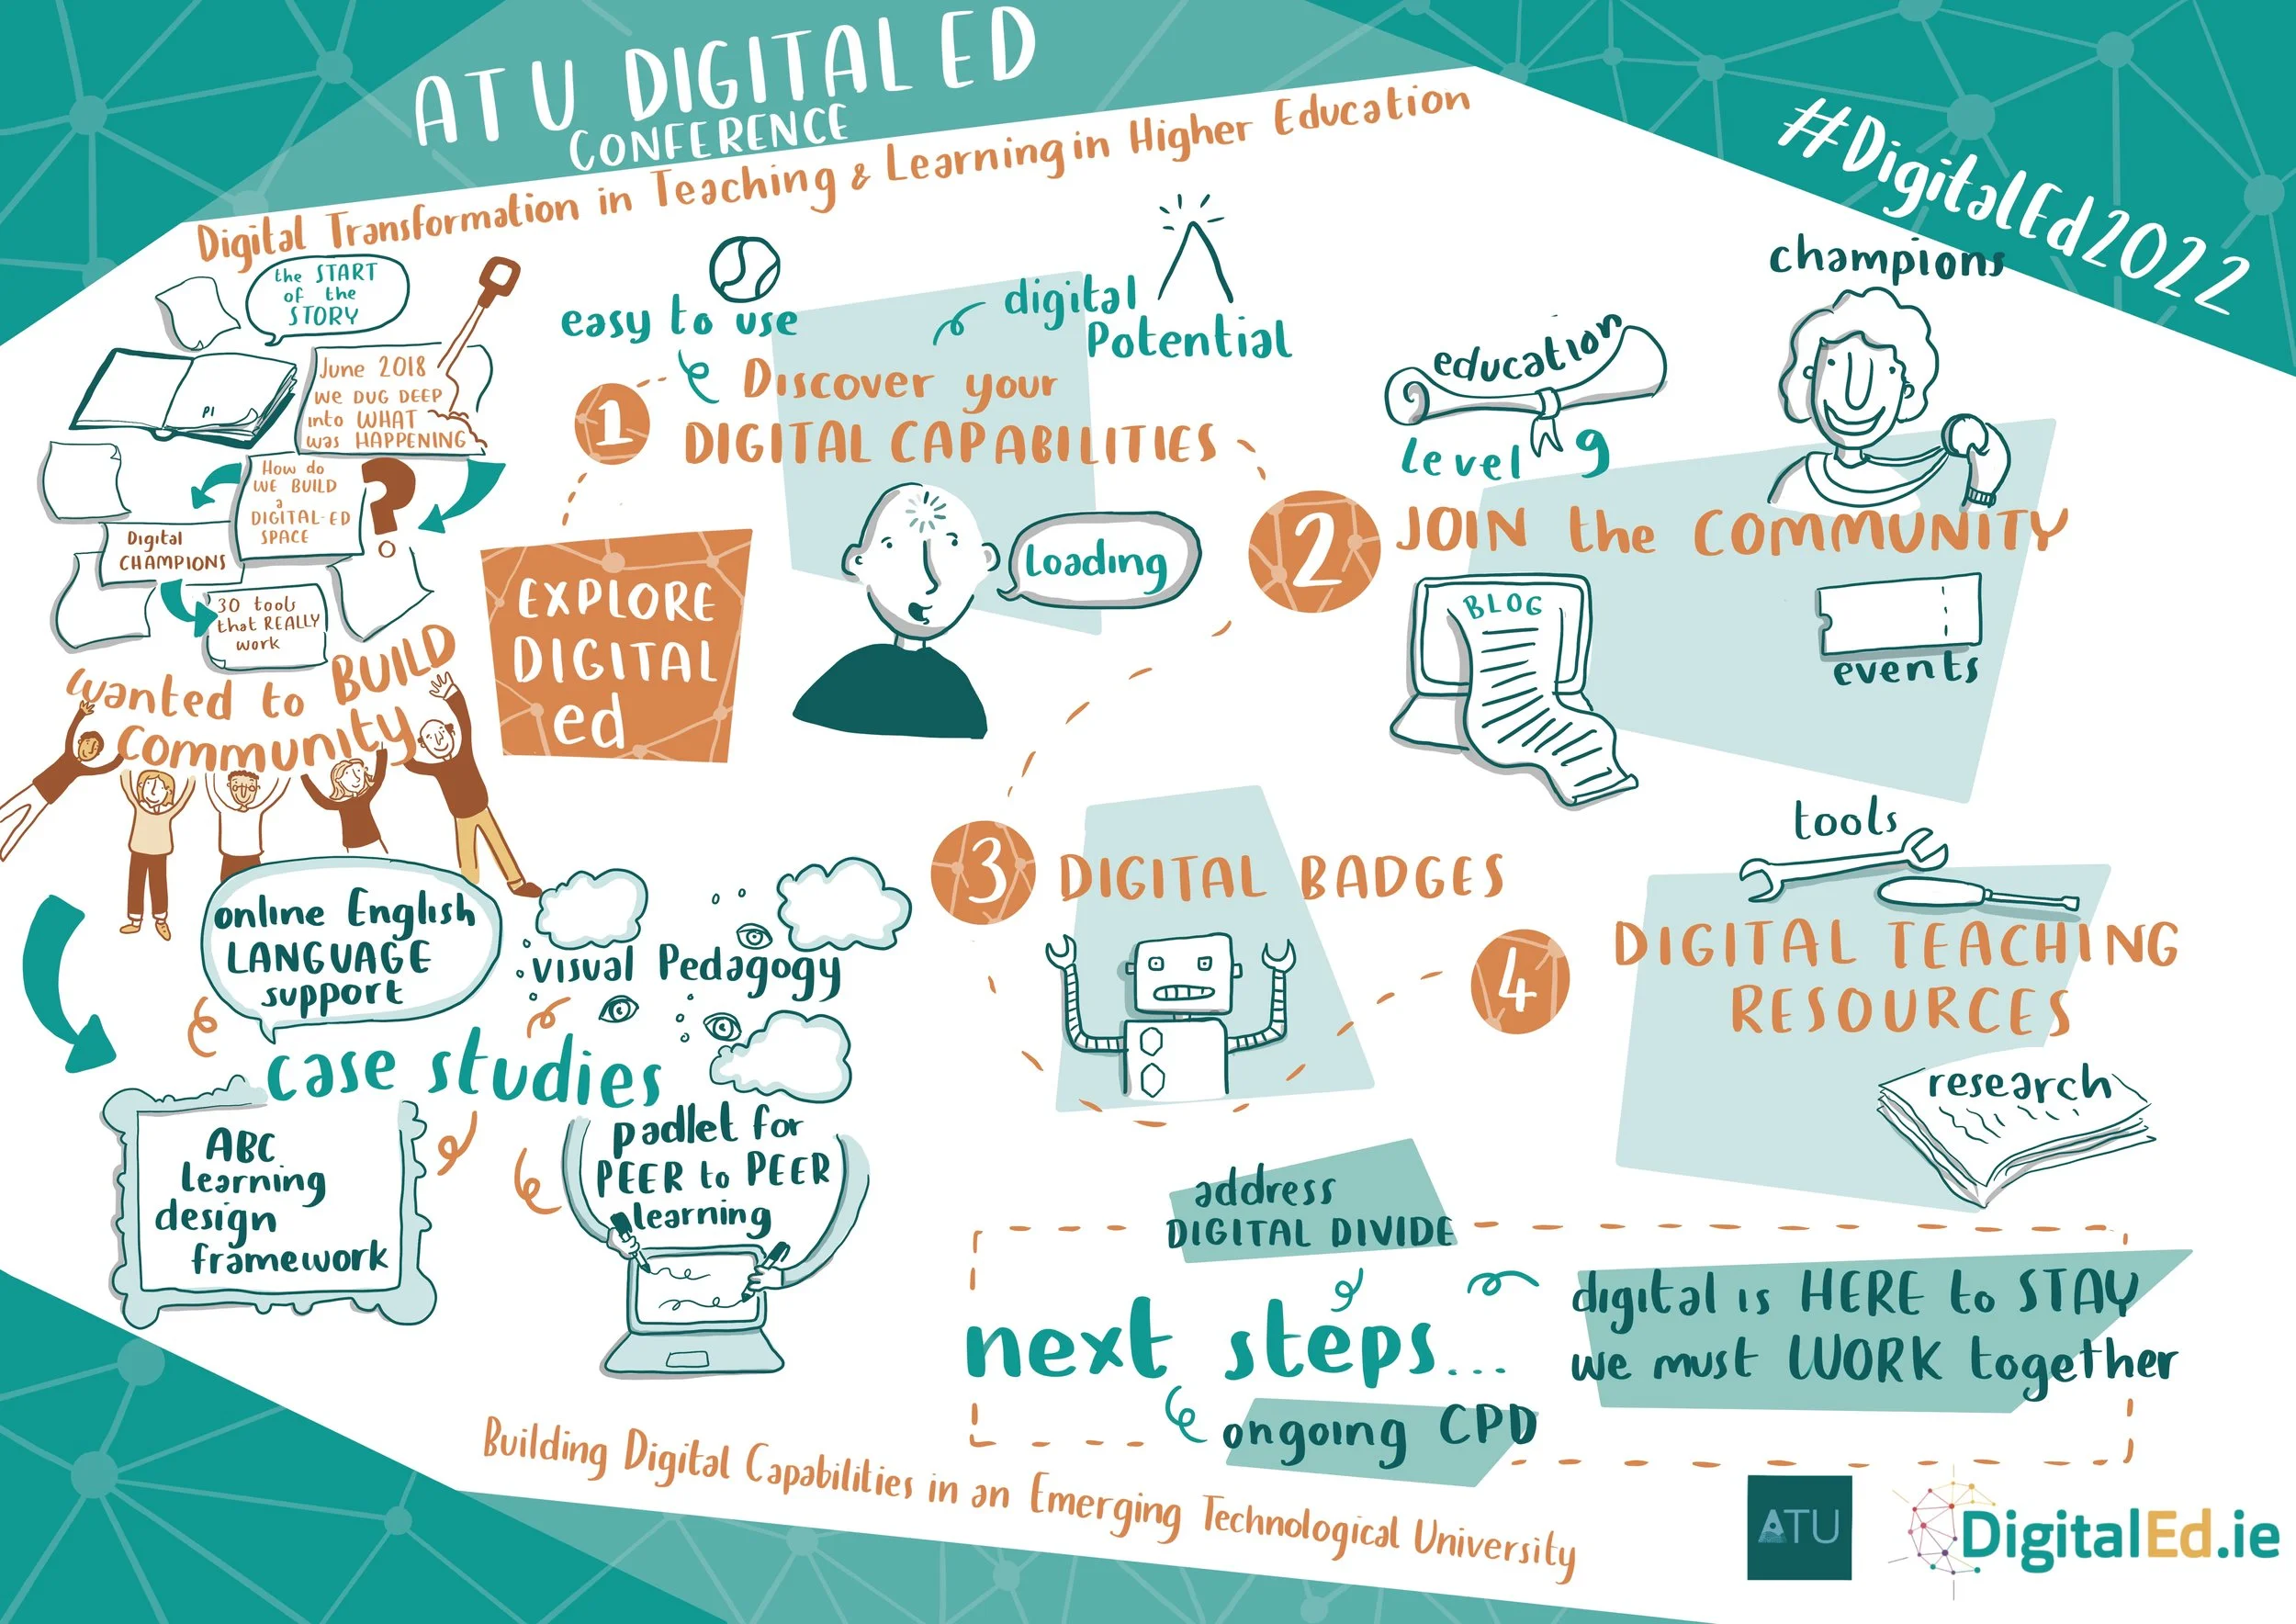 ATU DIGITAL ED
CONFERENCE
Digital Transformation in Teaching & Learning in Higher Education
#DigitalEd2022
the START
of the
STORY
P1
June 2018
WE DUG DEEP
into WHAT
was HAPPENING
How do
WE BUILD
a
DIGITAL-ED
SPACE
?
Digital
CHAMPIONS
30 tools
that REALLY
work
wanted to BUILD
community
EXPLORE
DIGITAL
ed
easy to use
digital
Potential
1
Discover your
DIGITAL CAPABILITIES
Loading
champions
education
level 9
2
JOIN the COMMUNITY
BLOG
events
3
DIGITAL BADGES
tools
4
DIGITAL TEACHING
RESOURCES
research
online English
LANGUAGE
support
visual Pedagogy
case studies
ABC
Learning
design
framework
padlet for
PEER to PEER
learning
address
DIGITAL DIVIDE
next steps...
ongoing CPD
digital is HERE to STAY
we must WORK together
Building Digital Capabilities in an Emerging Technological University
ATU
DigitalEd.ie